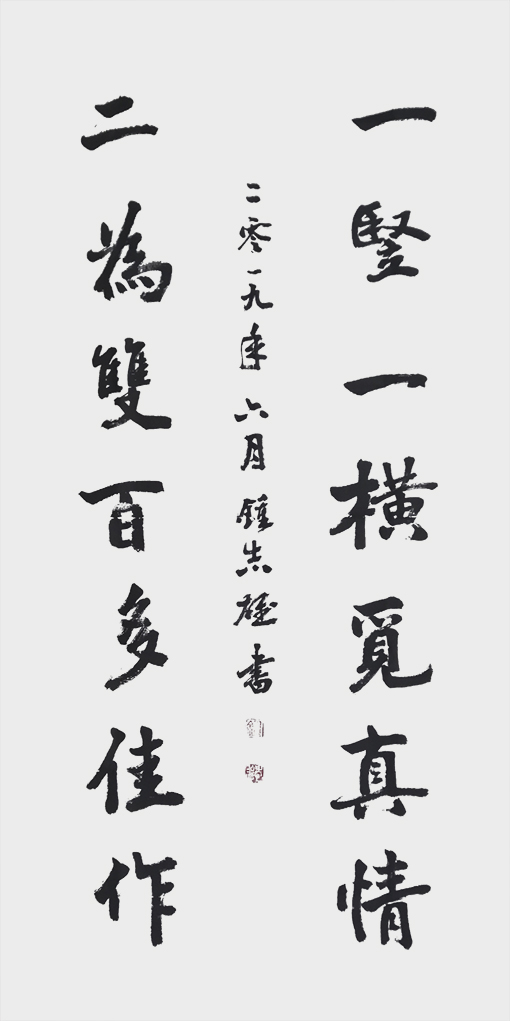 一豎一橫覓真情
二為雙百多佳作
二零一九年六月鍾志雄書